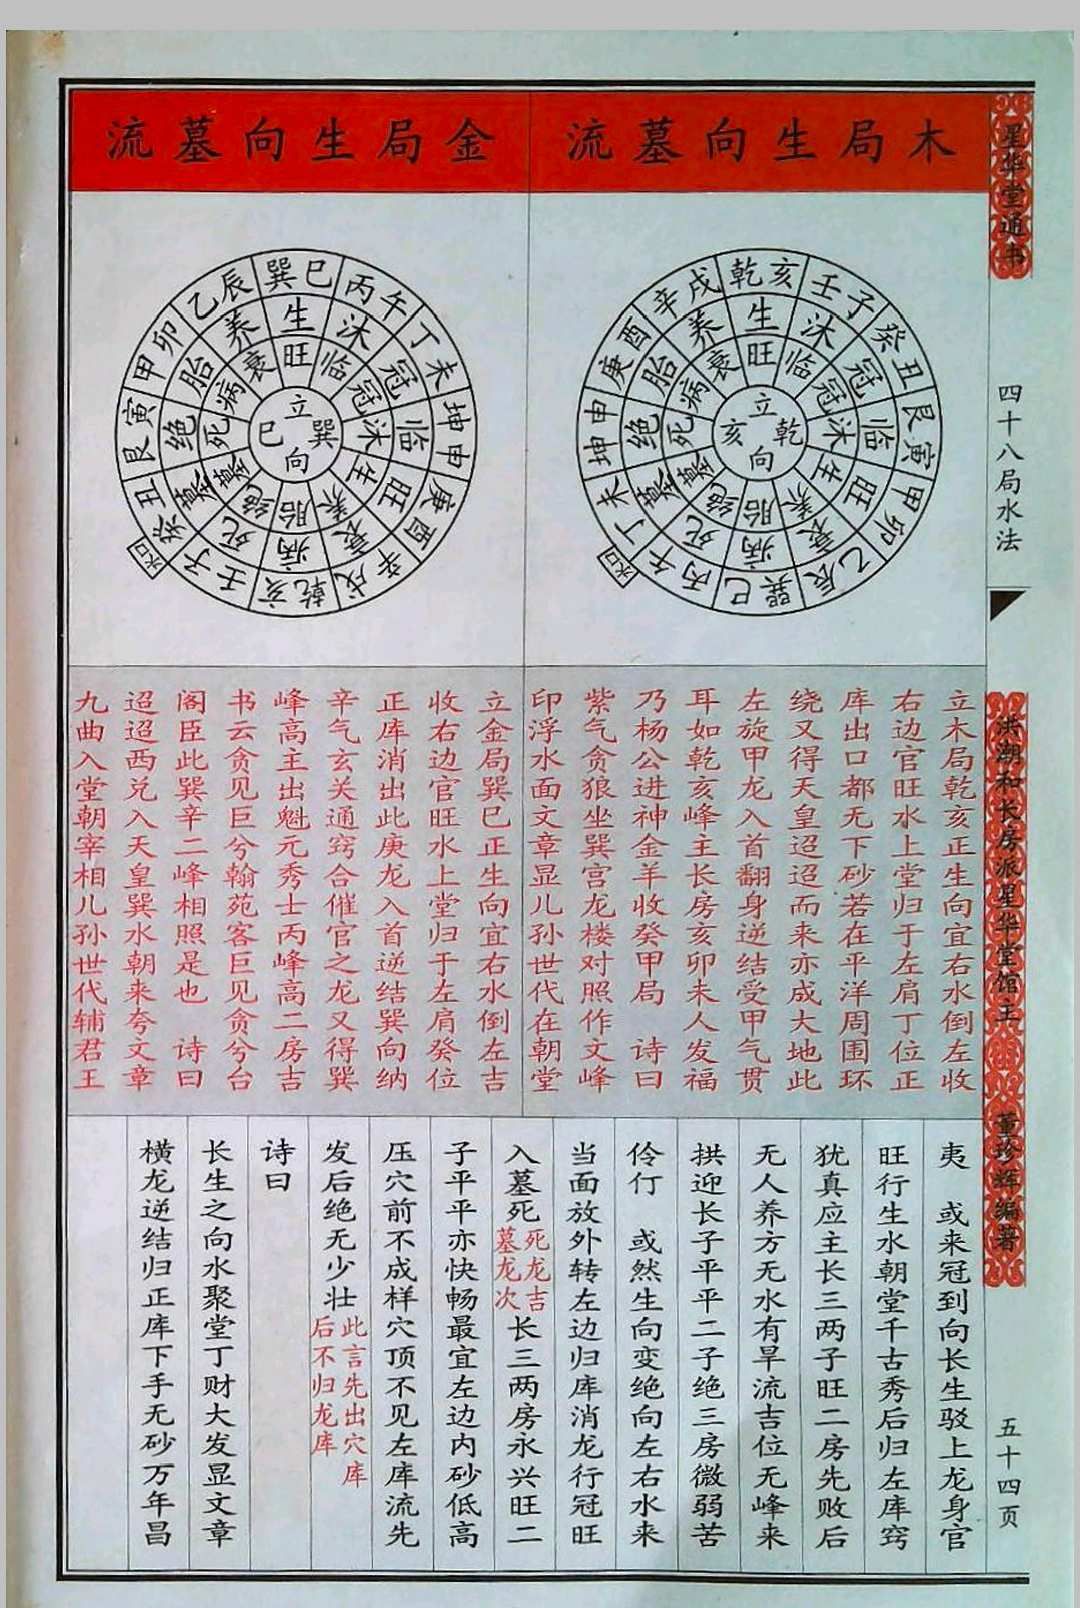 星华堂通书
四十八局水法
洪潮和长房派星华堂馆主
董珍辉编著
五十四页
木局生向墓流
乾亥
壬子
癸丑
艮寅
甲卯
乙辰
巽巳
丙午
丁未
坤申
庚酉
辛戌
生
沐
冠
临
旺
衰
病
死
墓
绝
胎
养
旺
临
冠
沐
生
养
胎
绝
墓
死
病
衰
立
乾
向
亥
水口
立木局乾亥正生向宜右水倒左收
右边官旺水上堂归于左肩丁位正
库出口都无下砂若在平洋周围环
绕又得天皇迢迢而来亦成大地此
左旋甲龙入首翻身逆结受甲气贯
耳如乾亥峰主长房亥卯未人发福
乃杨公进神金羊收癸甲局　诗曰
紫气贪狼坐巽宫龙楼对照作文峰
印浮水面文章显儿孙世代在朝堂
金局生向墓流
巽巳
丙午
丁未
坤申
庚酉
辛戌
乾亥
壬子
癸丑
艮寅
甲卯
乙辰
生
沐
冠
临
旺
衰
病
死
墓
绝
胎
养
旺
临
冠
沐
生
养
胎
绝
墓
死
病
衰
立
巽
向
巳
水口
立金局巽巳正生向宜右水倒左吉
收右边官旺水上堂归于左肩癸位
正库消出此庚龙入首逆结巽向纳
辛气玄关通窍合催官之龙又得巽
峰高主出魁元秀士丙峰高二房吉
书云贪见巨兮翰苑客巨见贪兮台
阁臣此巽辛二峰相照是也　诗曰
迢迢西兑入天皇巽水朝来夸文章
九曲入堂朝宰相儿孙世代辅君王
夷　或来冠到向长生驳上龙身官
旺行生水朝堂千古秀后归左库窍
犹真应主长三两子旺二房先败后
无人养方无水有旱流吉位无峰来
拱迎长子平平二子绝三房微弱苦
伶仃　或然生向变绝向左右水来
当面放外转左边归库消龙行冠旺
入墓死死龙吉墓龙次长三两房永兴旺二
子平平亦快畅最宜左边内砂低高
压穴前不成样穴顶不见左库流先
发后绝无少壮此言先出穴库后不归龙库
诗曰
长生之向水聚堂丁财大发显文章
横龙逆结归正库下手无砂万年昌